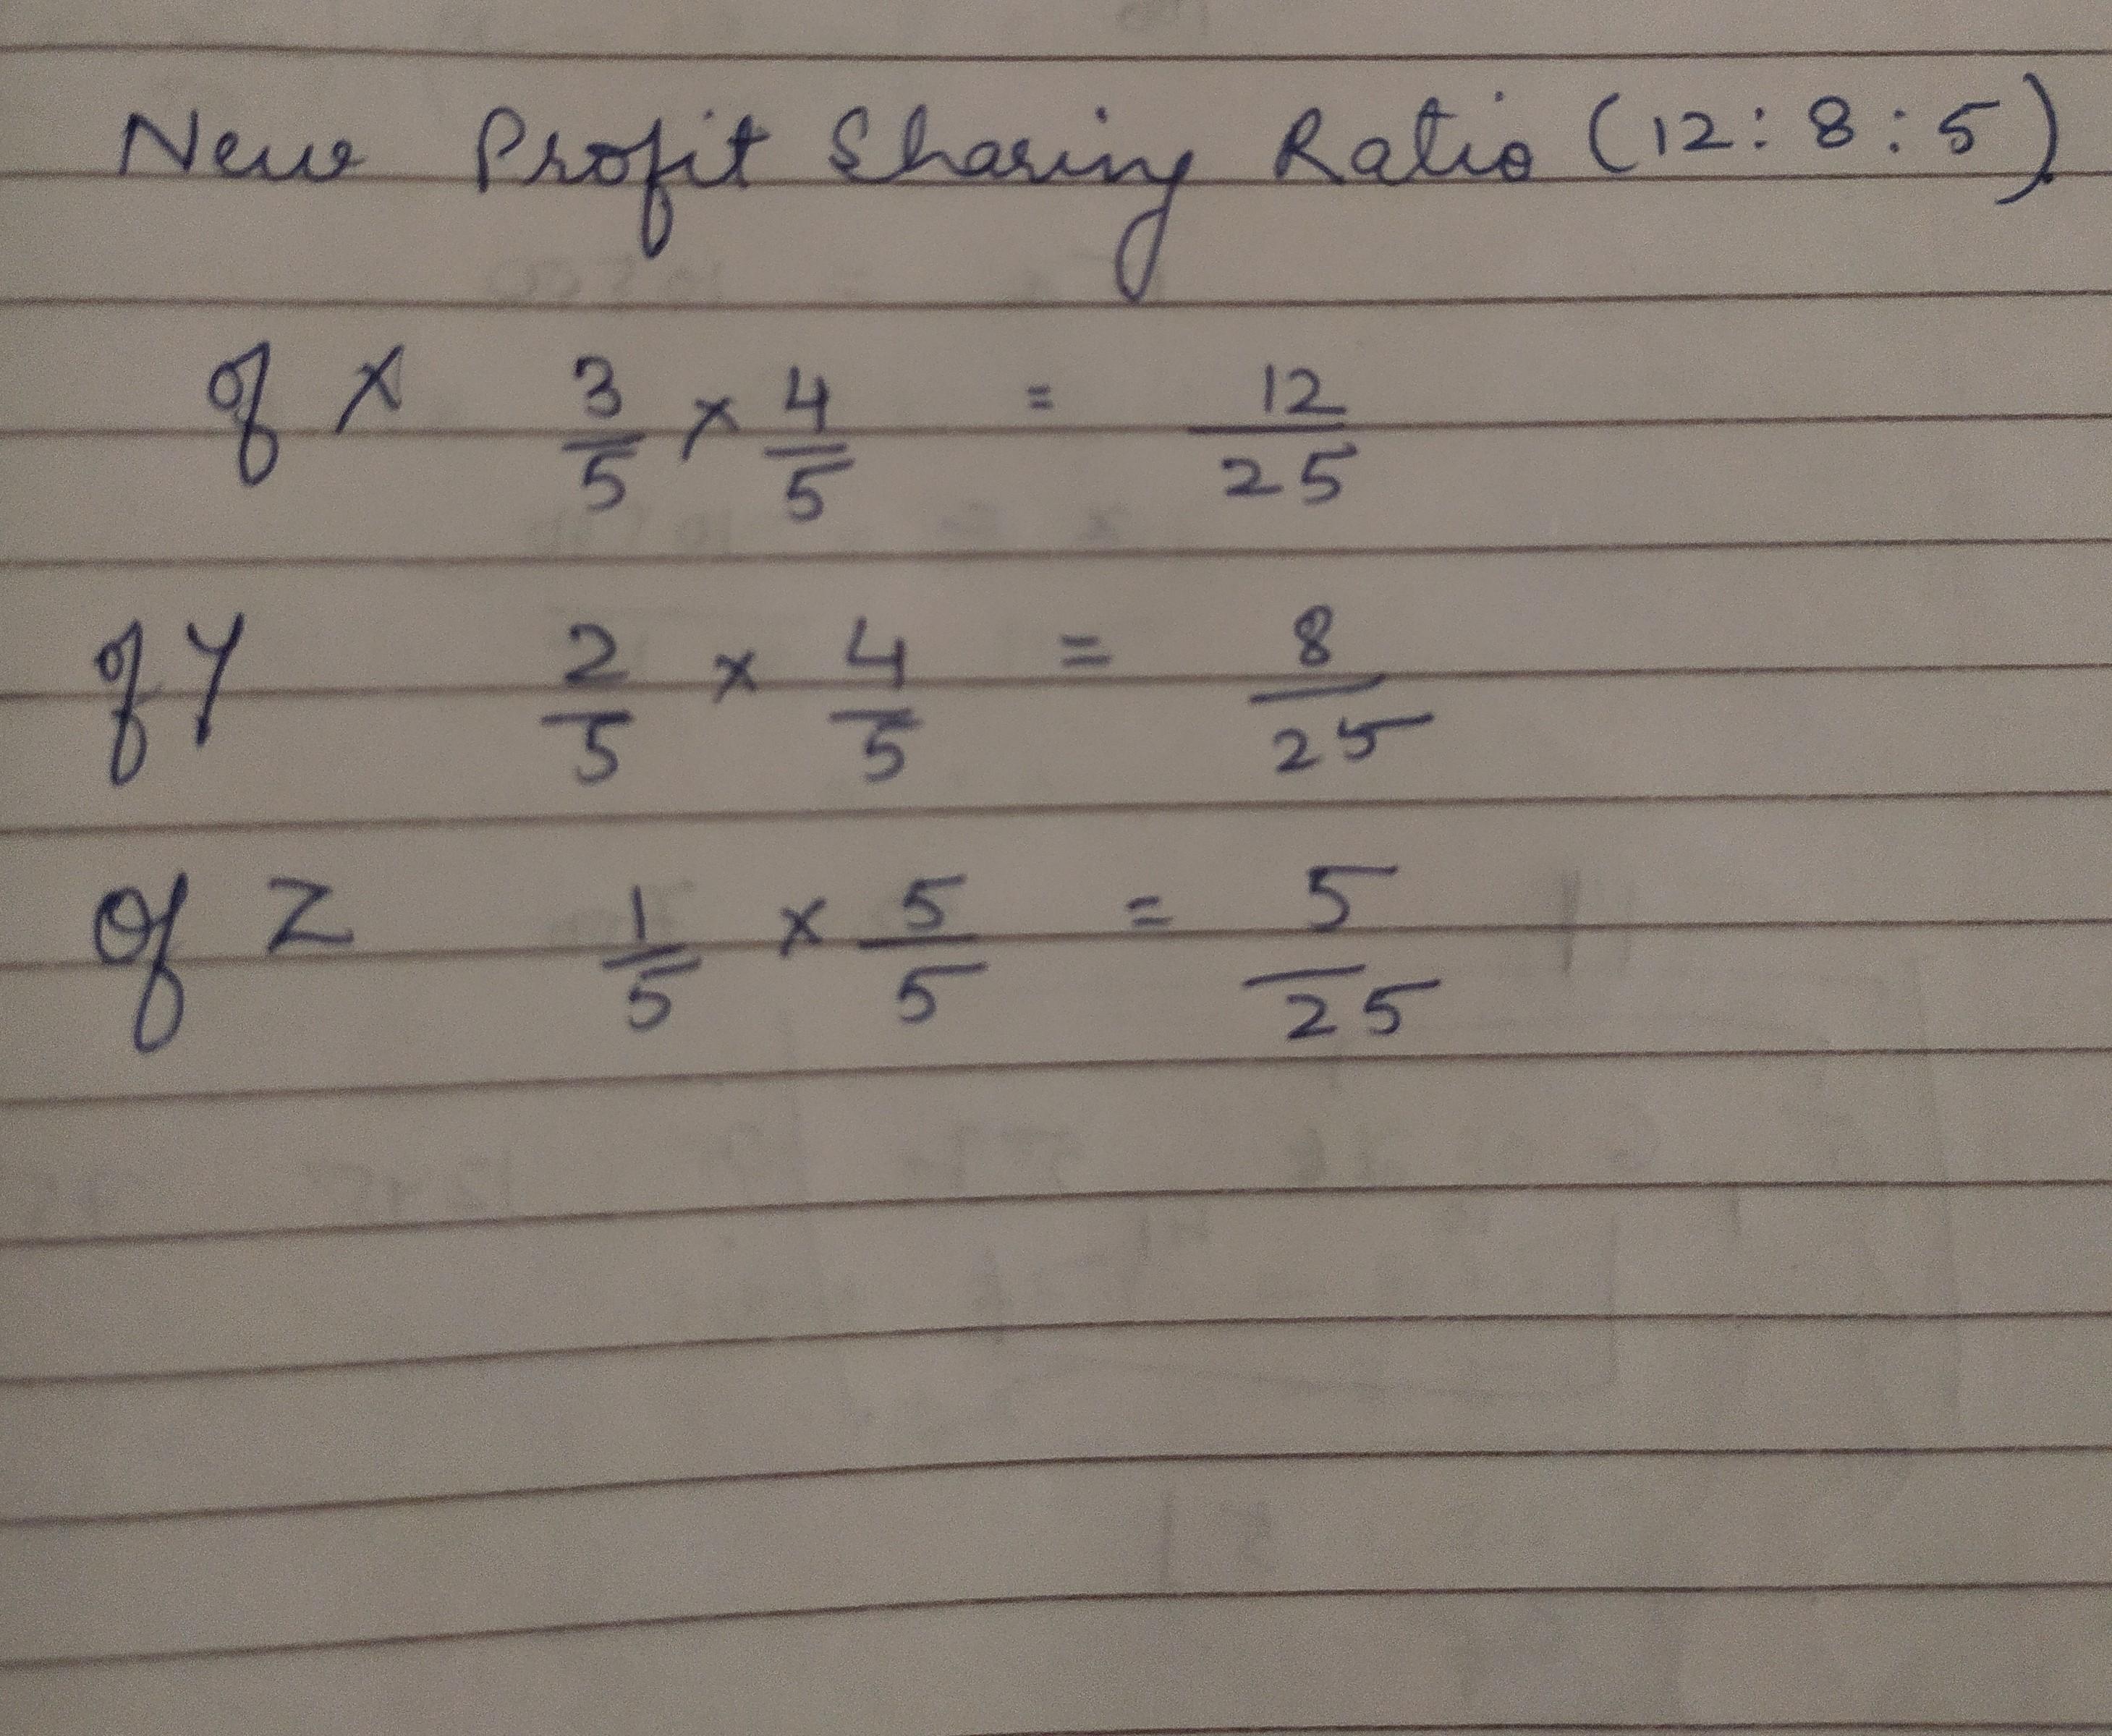 New Profit Sharing Ratio (12:8:5)
of X 3/5 × 4/5 = 12/25
of Y 2/5 × 4/5 = 8/25
of Z 1/5 × 5/5 = 5/25